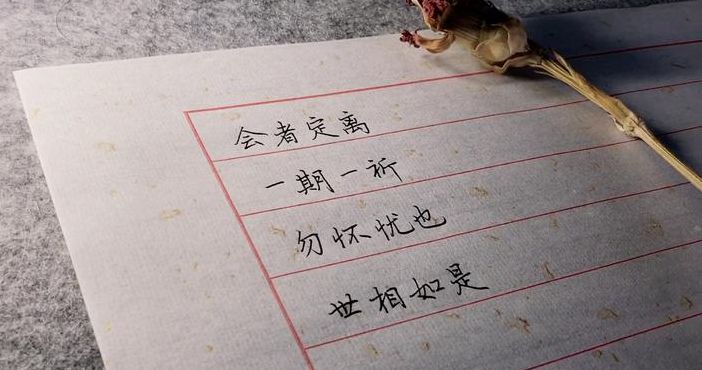 会者定离
一期一祈
勿怀忧也
世相如是